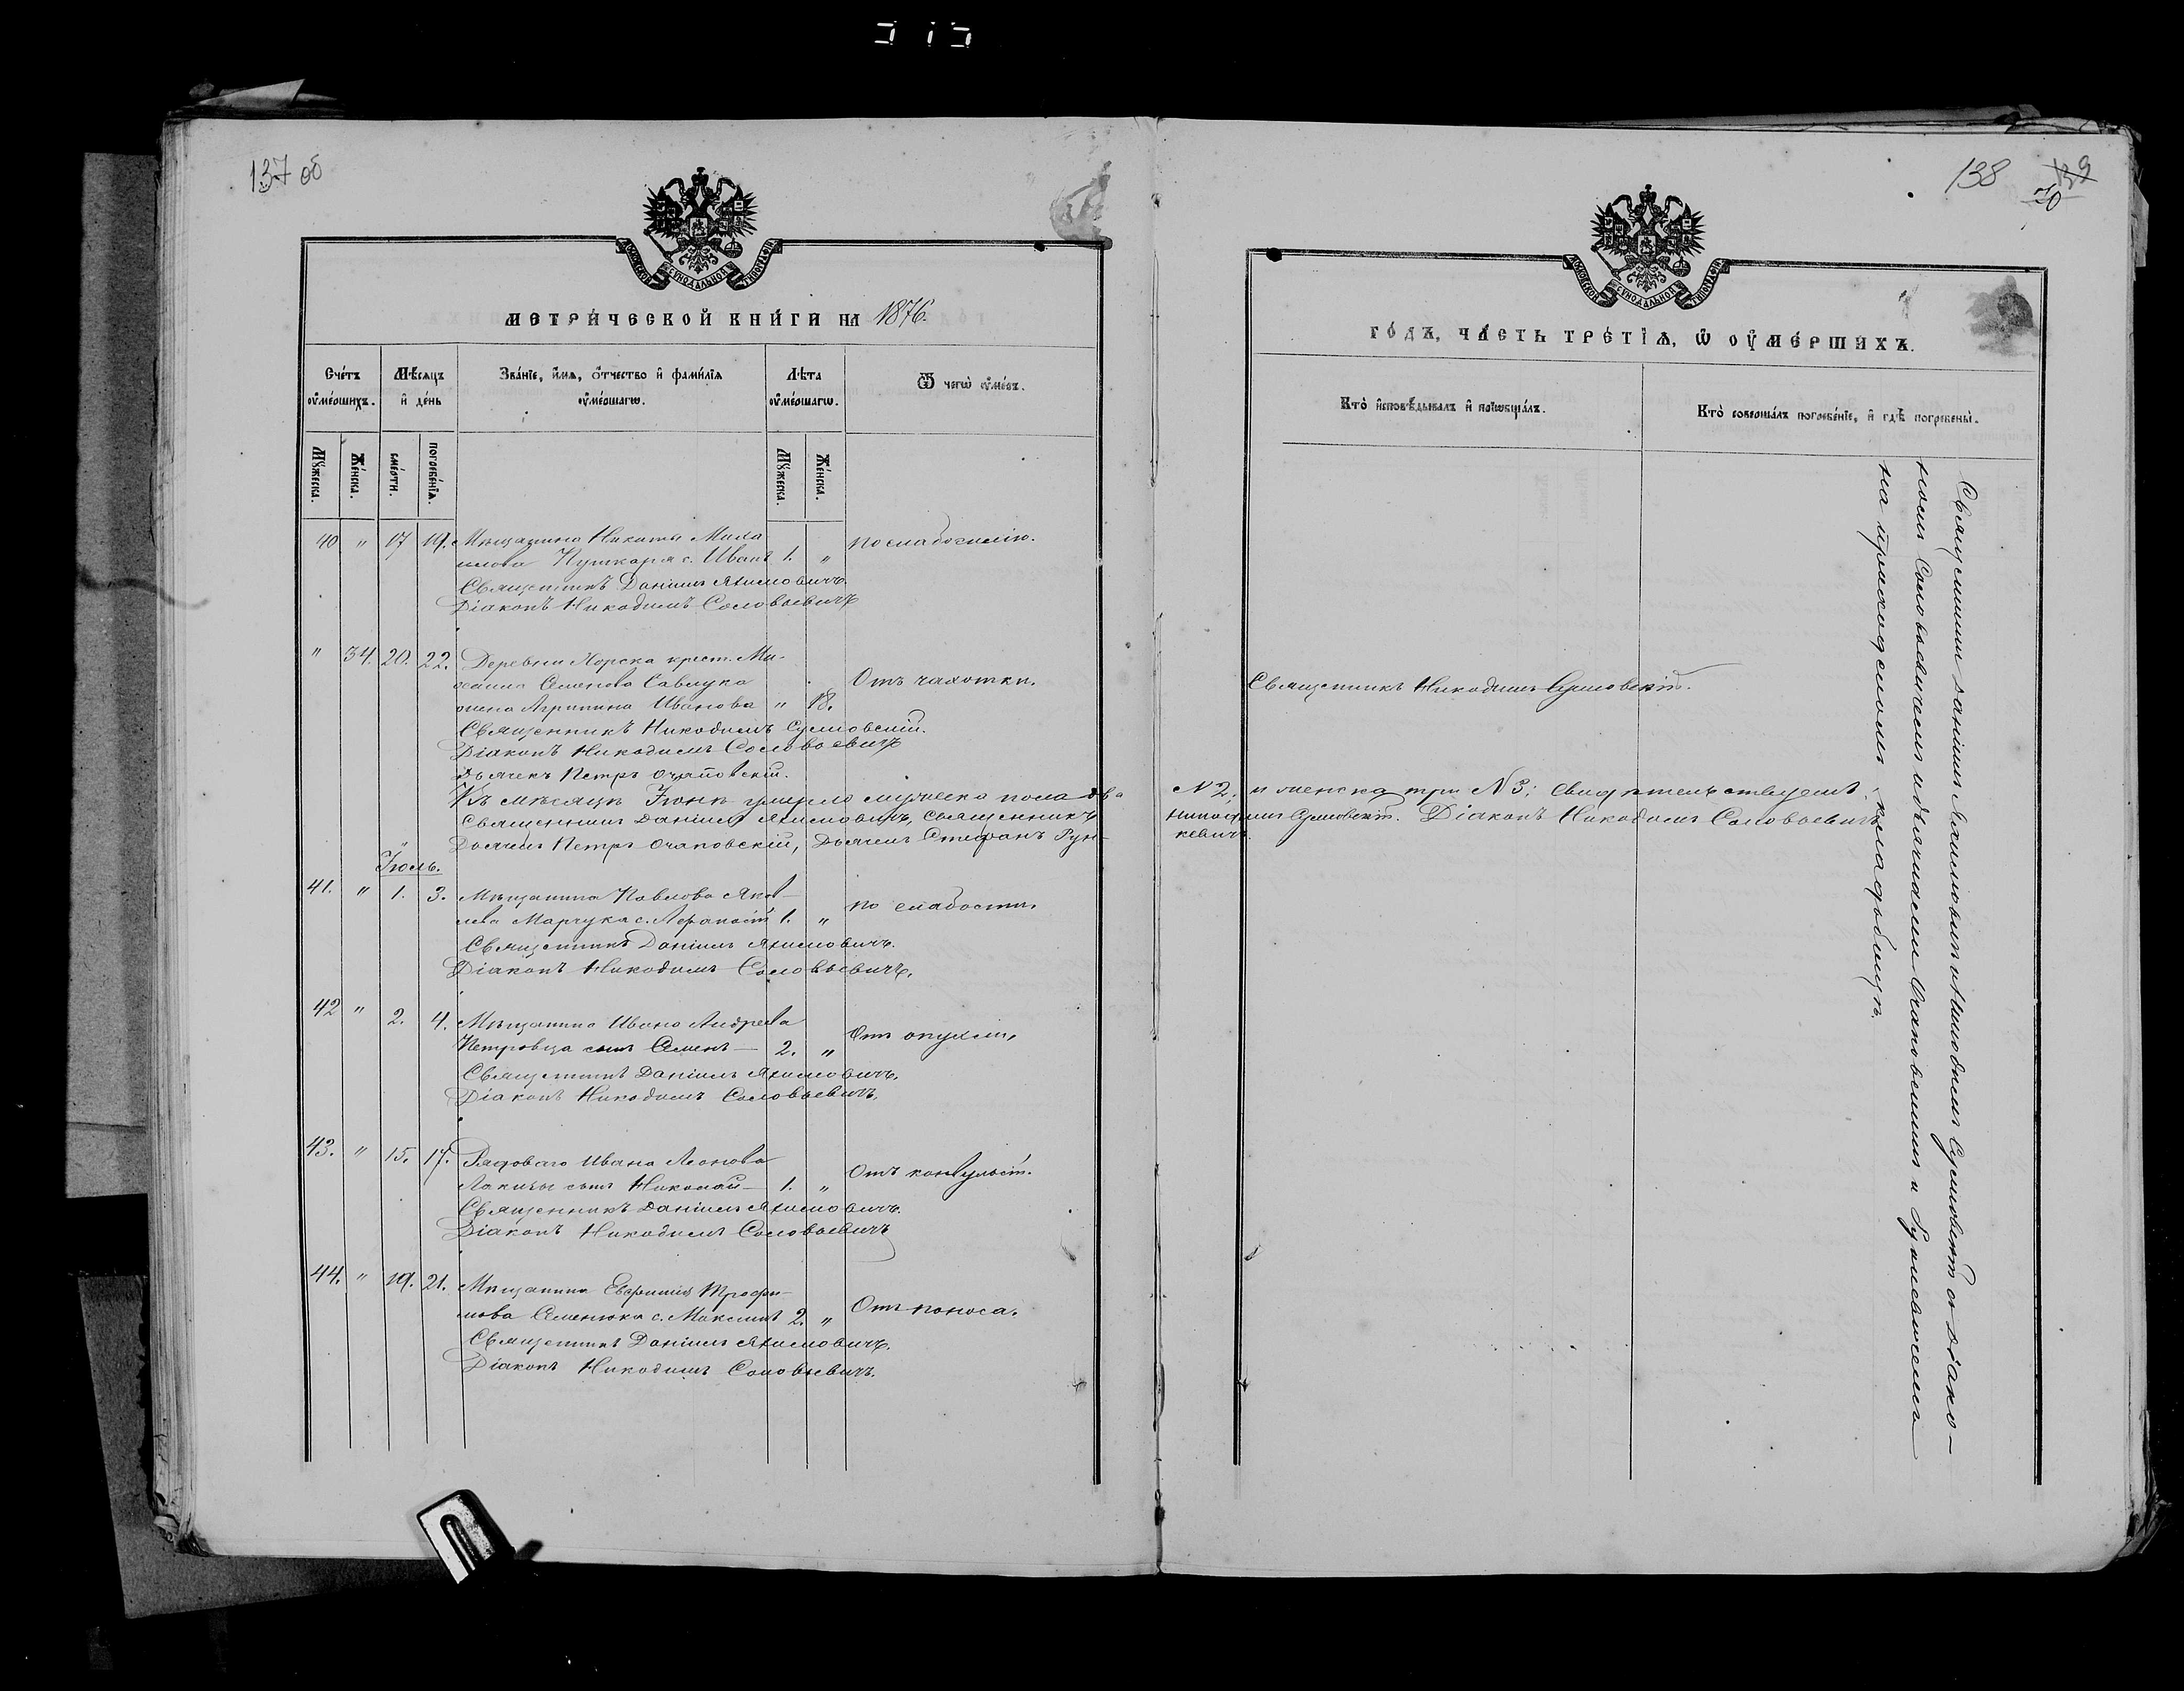 137 об
МЕТРИЧЕСКОЙ КНИГИ НА 1876.
Счетъ умершихъ.
Мѣсяцъ и день
Званіе, имя, отчество и фамилія умершагω.
Лѣта умершагω.
Ѿ чегω умеръ.
Мужеска.
Женска.
смерти.
погребенія.
Мужеска.
Женска.
40 " 17 19. Мѣщанина Никиты Миха
илова Пушкаря с. Иванъ 1. "
По слабосилію.
Священникъ Даніилъ Якимовичъ.
Діаконъ Никодимъ Соловьевичъ
" 34. 20. 22. Деревни Хорска крест. Ми-
хаила Семенова Савлука
жена Агрипина Иванова " 18.
Отъ чахотки.
Священникъ Никодимъ Сулковскій.
Діаконъ Никодимъ Соловьевичъ
Дьячекъ Петръ Очаповскій.
Въ мѣсяцѣ Іюнѣ умерло мужеска пола два
Священникъ Даніилъ Якимовичъ, Священникъ
Дьячекъ Петръ Очаповскій, Дьячекъ Стефанъ Рун-
Іюль.
41. " 1. 3. Мѣщанина Павлова Яков
лева Марчука с. 1. "
по слабости.
Священникъ Даніилъ Якимовичъ.
Діаконъ Никодимъ Соловьевичъ.
42 " 2. 4. Мѣщанина Ивана Андреева
Петровца сынъ Семенъ — 2. "
Отъ опухли,
Священникъ Даніилъ Якимовичъ.
Діаконъ Никодимъ Соловьевичъ,
43. " 15. 17. Рядоваго Ивана Леонова
Лакизы сынъ Николай — 1. "
Отъ конвульсій.
Священникъ Даніилъ Якимовичъ.
Діаконъ Никодимъ Соловьевичъ
44. " 19. 21. Мѣщанина Евфимія Трофи-
мова Семенюка с. Максимъ 2. "
Отъ поноса.
Священникъ Даніилъ Якимовичъ.
Діаконъ Никодимъ Соловьевичъ.
138
139
70
ГОДЪ, ЧАСТЬ ТРЕТІЯ, Ѿ УМЕРШИХЪ.
Кто исповѣдывалъ и пріωбщалъ.
Кто совершалъ погребеніе, и гдѣ погребены.
Священникъ Никодимъ Сулковскій.
N 2, и женска три N 3; Свидѣтельствуемъ
Никодимъ Сулковскій. Діаконъ Никодимъ Соловьевичъ
кевичъ.
Священники Даніилъ Якимовичъ и Никодимъ Сулковскій съ діако-
номъ Соловьевичемъ и дьячками Очаповскимъ и Рункевичемъ
на приходскомъ кладбищѣ.